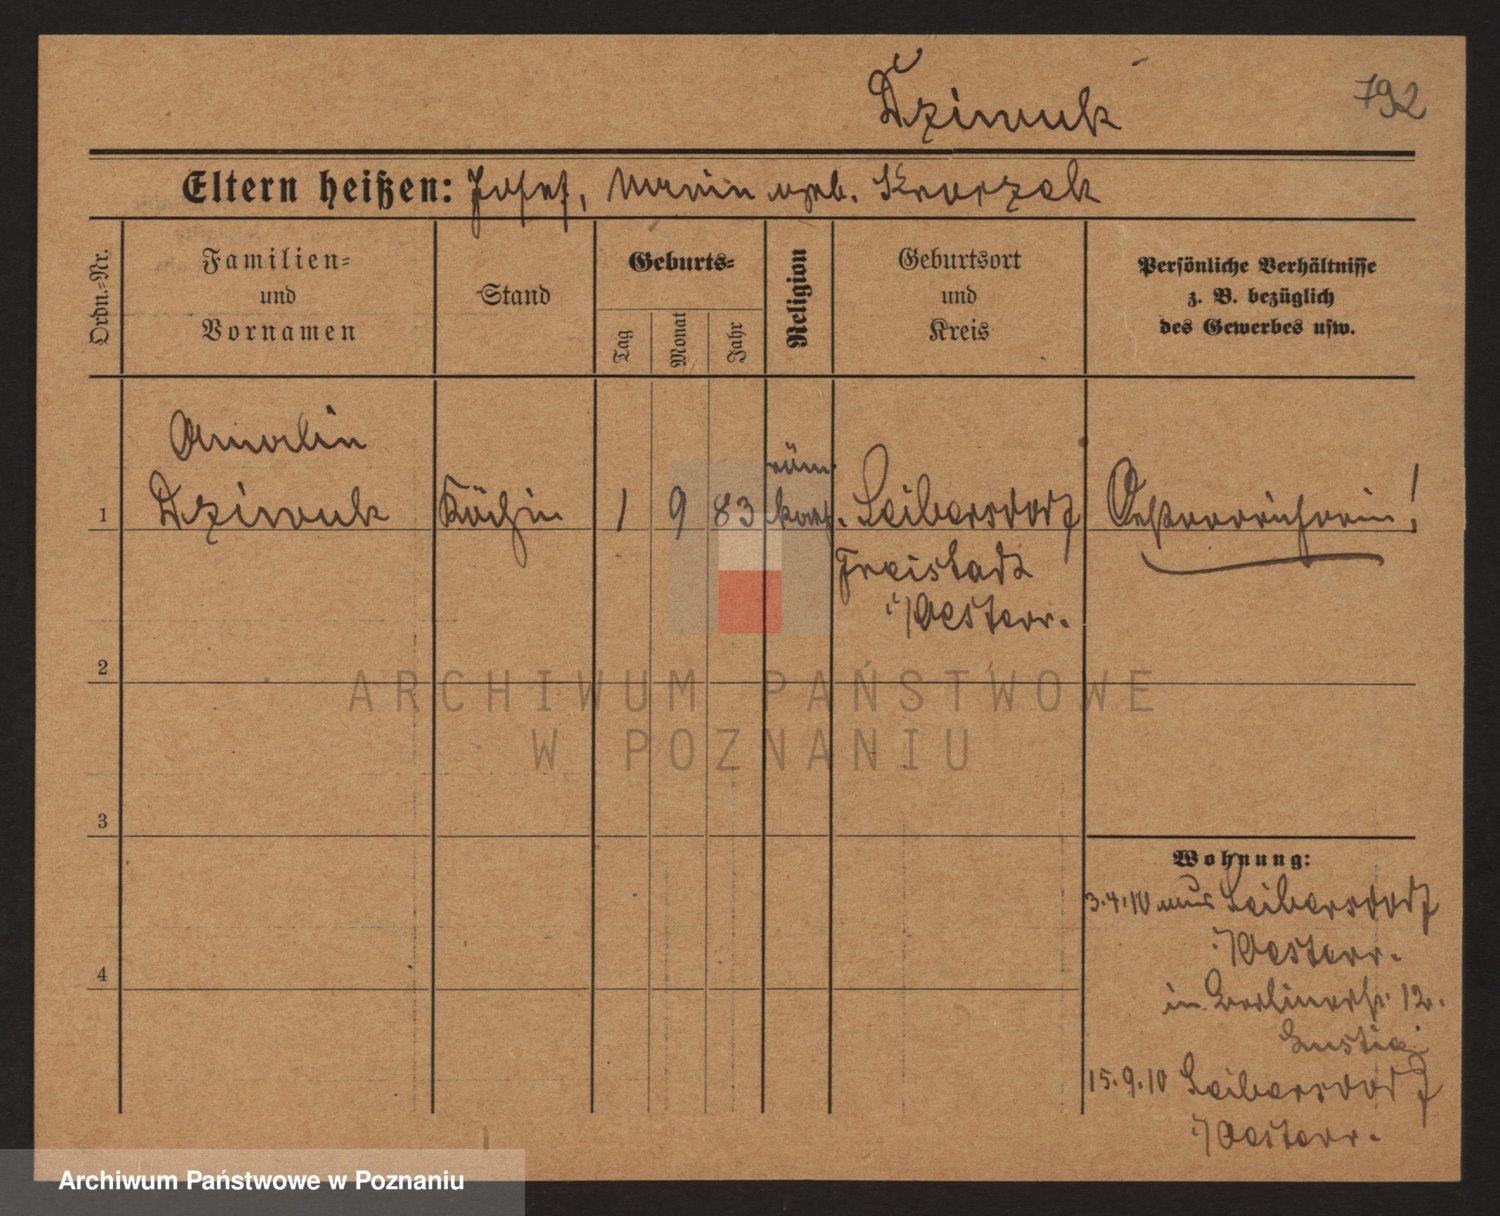 Dziuuk
792
Eltern heißen: Josef, Marie geb. Krorzek
Ordn.=Nr.
Familien=
und
Vornamen
Stand
Geburts=
Tag
Monat
Jahr
Religion
Geburtsort
und
Kreis
Persönliche Verhältnisse
z. B. bezüglich
des Gewerbes usw.
Amalie
1 Dziuuk Köchin 1 9 83 röm. kath. Seibersdorf Oesterreicherin!
Freistadt
i/Oesterr.
2
3
4
Wohnung:
3.4.10 aus Seibersdorf
i/Oesterr.
in Berlinerstr. 12.
15.9.10 Seibersdorf
i/Oesterr.
ARCHIWUM PAŃSTWOWE
W POZNANIU
Archiwum Państwowe w Poznaniu